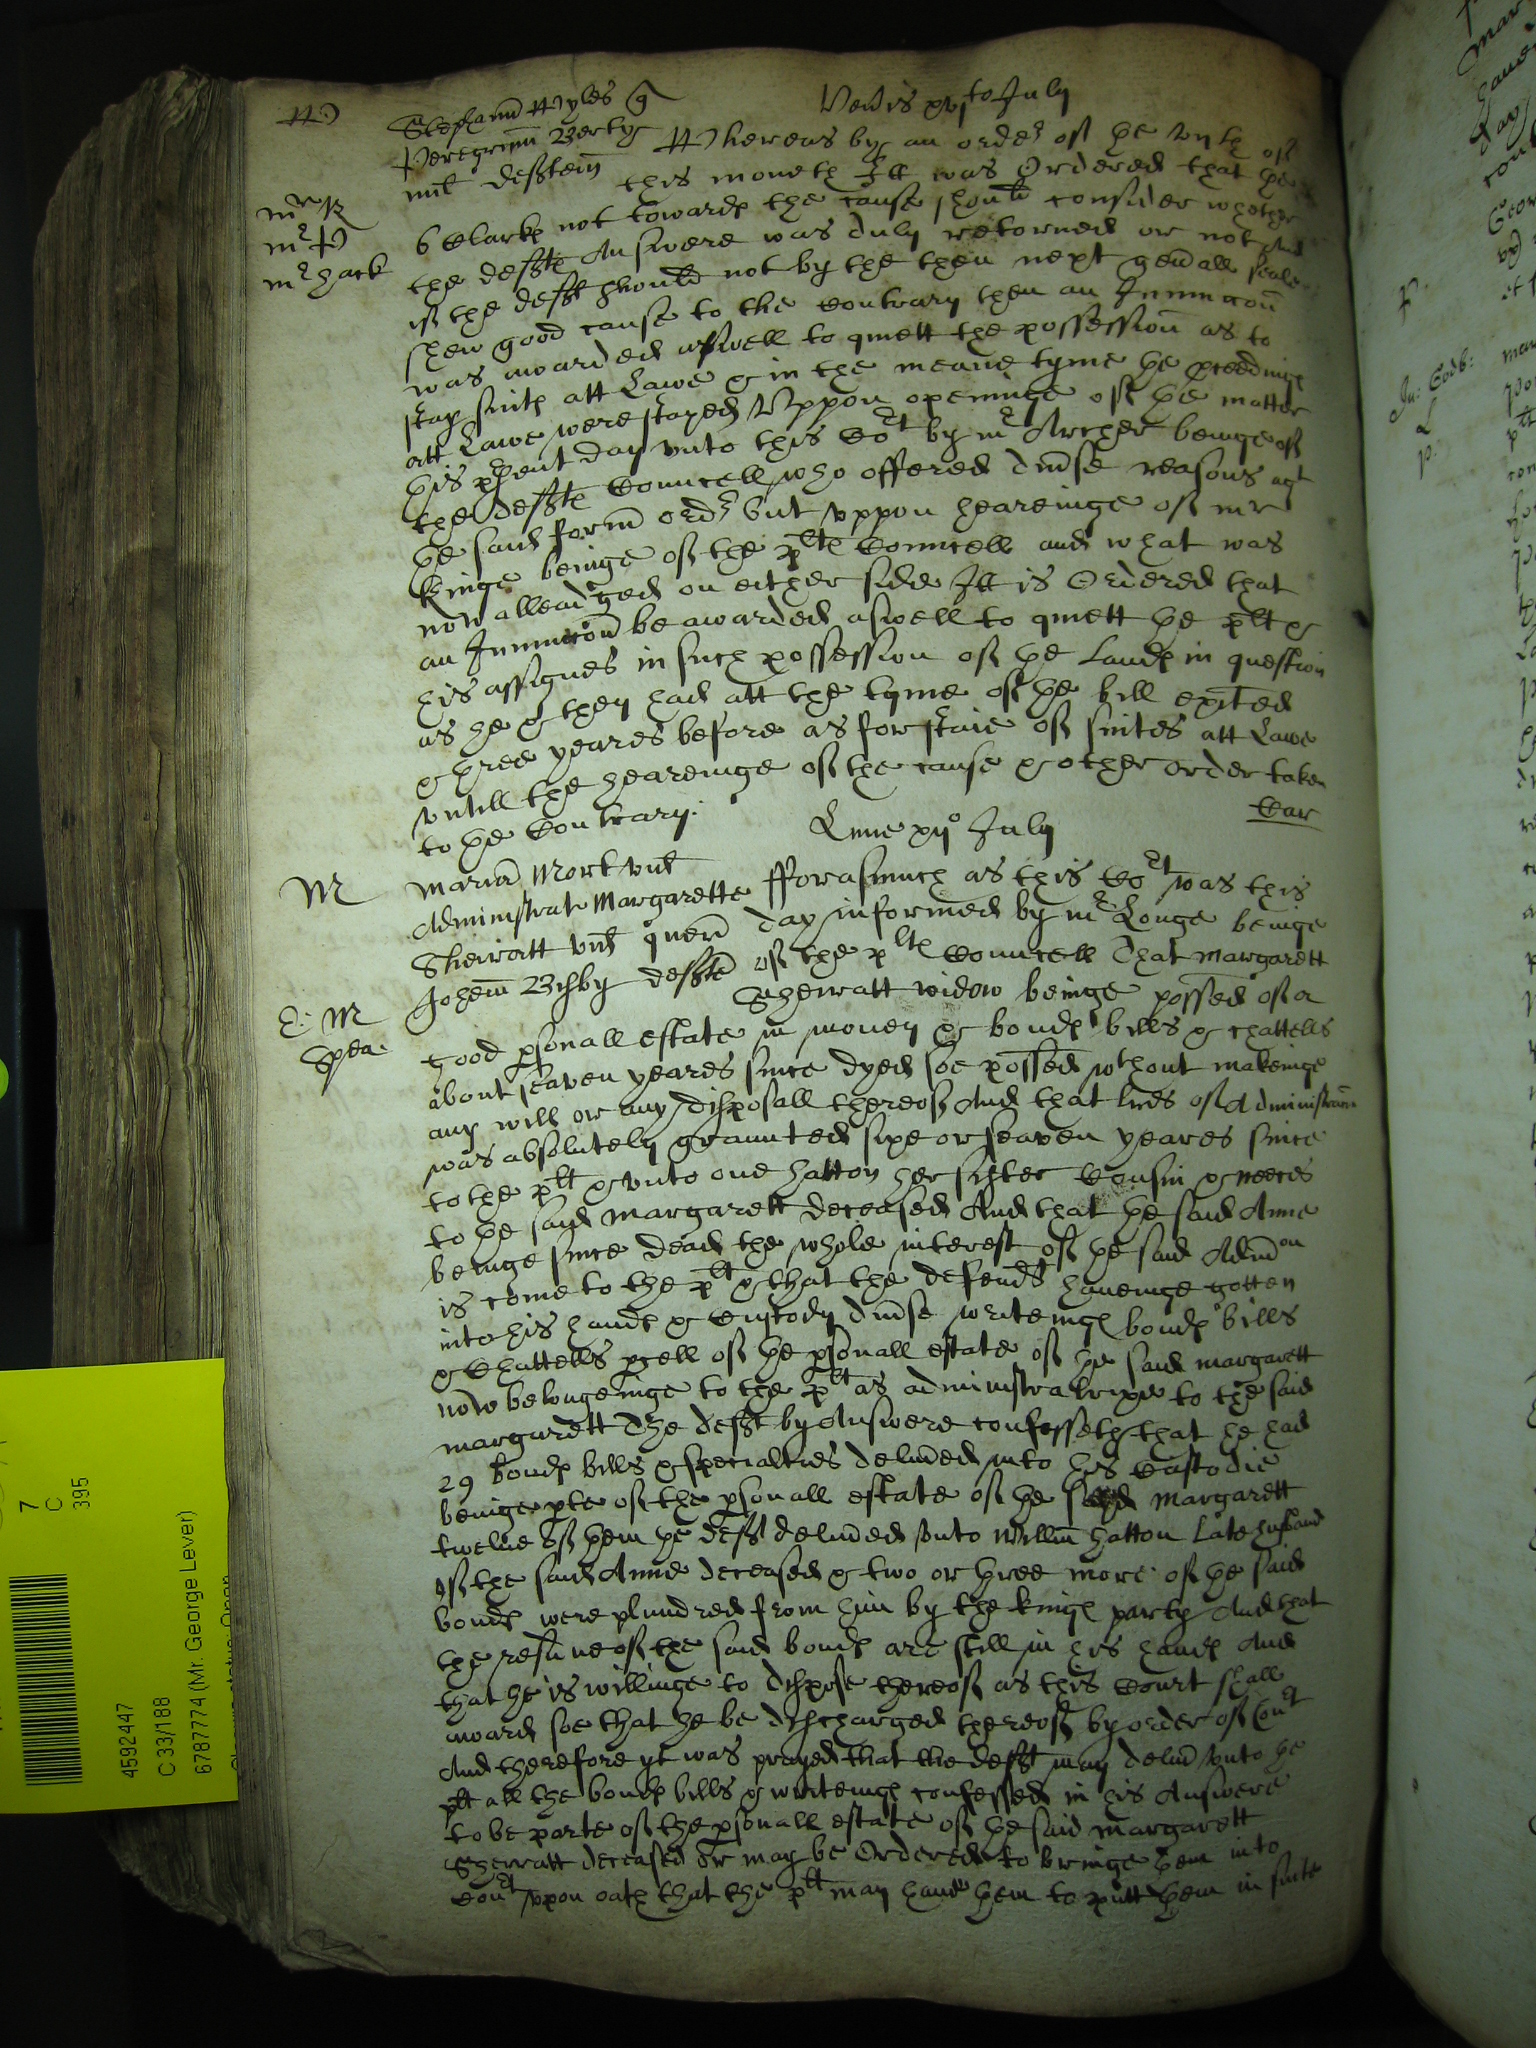 W
Stephanu Wyles q
Veneris xvi to July
Peregrinu Berty
mil defften
Whereas by an order of the viijth of
this moneth Itt was Ordered that the
mr R
mr P
mr Hack
6 Clarkes not towards the cause should consider whether
the defftes Answere was duly retorned or not And
if the defft should not by the then next gen'all seale
shew good cause to the Contrary then an Iniuncion
was awarded aswell to quiett the possession as to
stay suites att Lawe & in the meane tyme the p'ceedings
att Lawe were stayed Vppon openinge of the matter
this p'sent day vnto this Cort by mr Archer beinge of
the defftes Councell who offered div'se reasons agt
the said form' ordr but vppon heareinge of mr
Kinge beinge of the pltes Councell and what was
now alleadged on either side Itt is Ordered that
an Iniuncion be awarded aswell to quiett the plt &
his assignes in such possession of the Landes in question
as he & they had att the tyme of the bill exited
& three yeares before as for staie of suites att Lawe
vntill the heareinge of the cause & other order taken
to the Contrary.
Car
Lune xij o July
M
Maria Mort vid
Administrat Margarette
Sheiratt vid quer
Johem Bisby defften
Fforasmuch as this Cort was this
day informed by mr Longe beinge
of the pltes Councell That Margarett
Sheiratt widow beinge possed of a
E: M
Spea.
good p'sonall estate in money & bondes bills & chattells
about seaven yeares since dyed soe possed wthout makeinge
any will or any disposall thereof And that lres of Administracion
was absolutely graunted sixe or seaven yeares since
to the plt & vnto one Hatton her sister Cousin & neeces
to the said Margarett deceased And that the said Anne
beinge since dead the whole interest of the said Adm'on
is come to the plt & that the defendt haveinge gotten
into his handes & Custody div'se writeinges bondes bills
& Chattells p'cell of the p'sonall estate of the said Margarett
now belongeinge to the plt as administratrixe to the said
Margarett The defft by Answere confesseth that he had
29 bondes bills & specialties deliv'ed into his Custodie
beinge p'te of the p'sonall estate of the said Margarett
twelve of them the defft deliv'ed vnto Willm Hatton late husband
of the said Anne deceased & two or three more of the said
bondes were plundred from him by the Kinges party And that
the residue of the said bondes are still in his handes And
that he is willinge to dispose thereof as this Court shall
award soe that he be discharged thereof by order of Cort
And therefore yt was prayed that the defft may deliv' vnto the
plt all the bondes bills & writeinges confessed in his Answere
to be parte of the p'sonall estate of the said Margarett
Sherratt deceased or may be Ordered to bringe them into
Cort vpon oath that the plt may have them to putt them in suite
7
C
395
4592447
C 33/188
6787774 (Mr. George Lever)
Jn: Godb:
L
p.